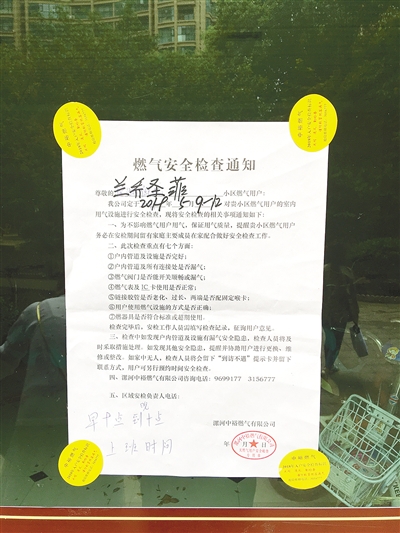 燃气安全检查通知
尊敬的兰乔圣菲小区燃气用户:
我公司定于2019年5.9-12对贵小区燃气用户的室内
用气设施进行安全检查,现将安全检查的相关事项通知如下:
一、为不影响燃气用户用气,保证用气质量,提醒贵小区燃气用户
务必在安检期间留有家庭主要成员在家配合做好安全检查工作。
二、此次检查重点有七个方面:
①户内管道及设施是否完好;
②户内管道及所有连接处是否漏气;
③燃气阀门是否能开关顺畅或漏气;
④燃气表及IC卡使用是否正常;
⑤链接胶管是否老化、过长,两端是否配固定喉卡;
⑥用户使用燃气设施的方式是否正确;
⑦燃器具是否符合标准或超期使用。
检查完毕后,安检工作人员需填写检查记录,征询用户意见。
三、检查中如发现户内管道及设施有漏气安全隐患,检查人员将及
时采取措施处理。如发现其他安全隐患,提醒并协助用户进行更换、维
修或整改。如家中无人,检查人员将会留下“到访不遇”提示卡并留下
联系方式,用户可另行预约时间安全检查。
四、漯河中裕燃气有限公司咨询电话:9699177 3156777
五、区域安检负责人电话:
早十点到晚十点
上班时间
漯河中裕燃气有限公司
年 月 日